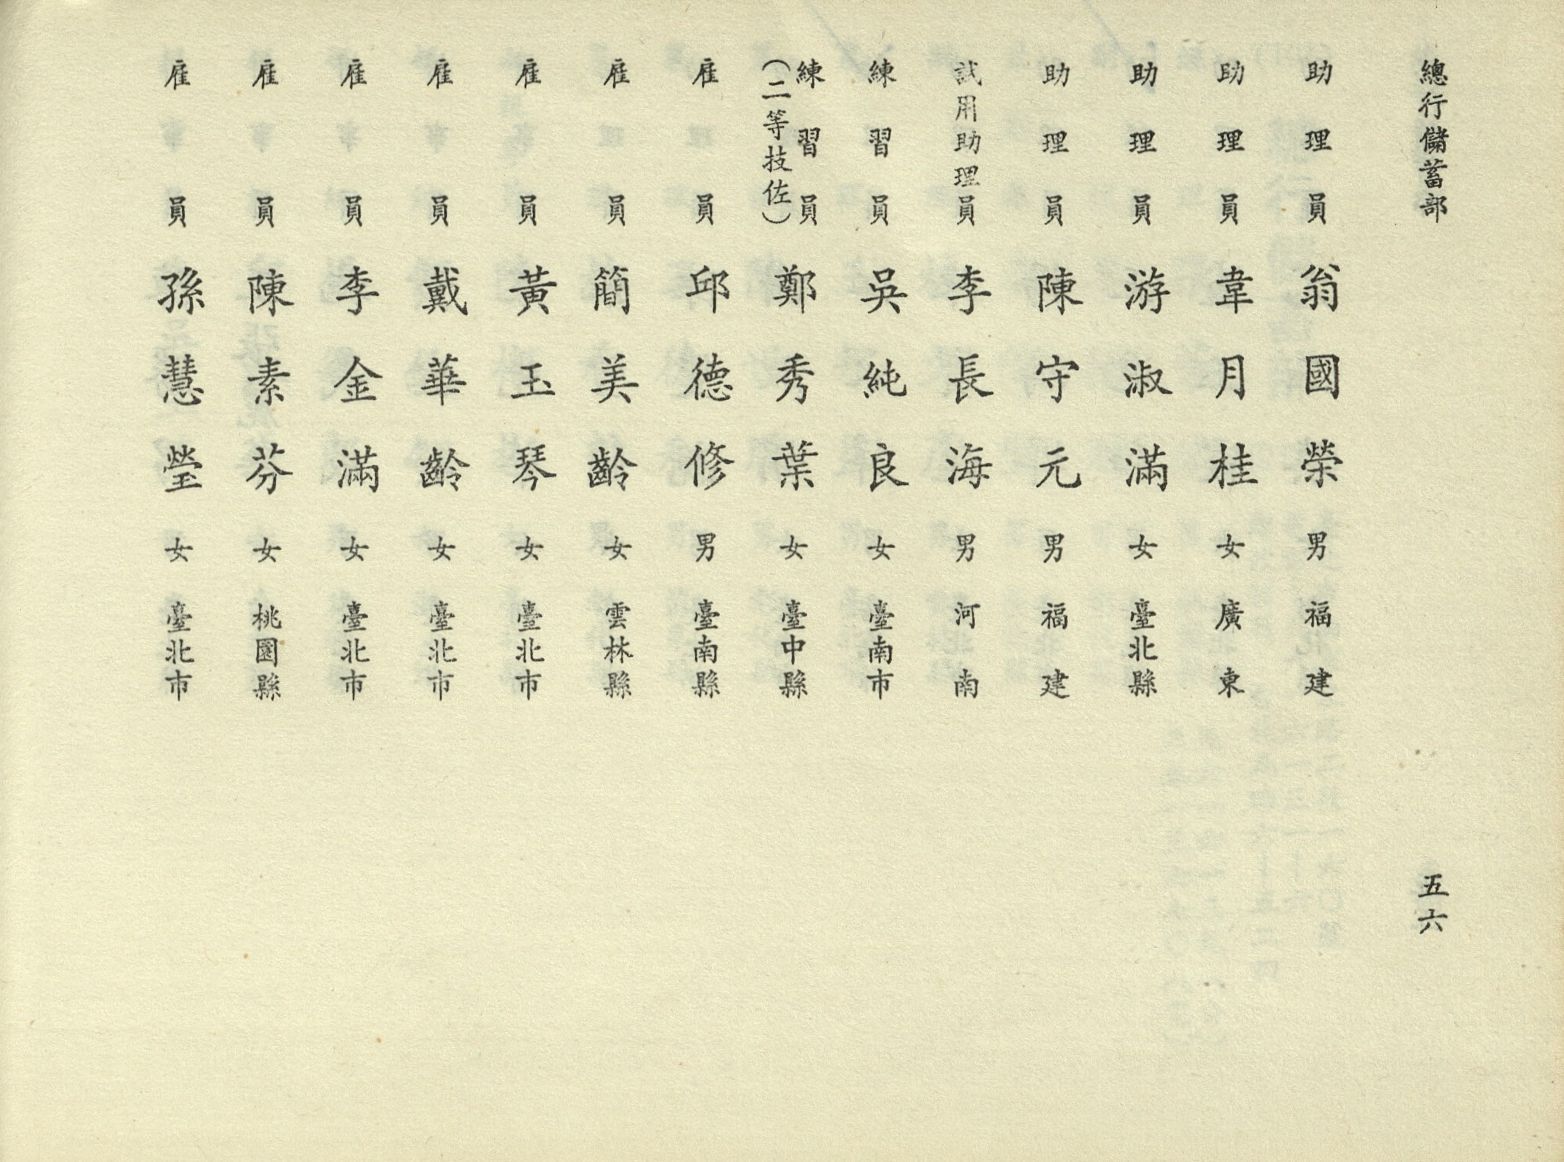 總行儲蓄部
五六
助理員 翁國榮 男 福建
助理員 韋月桂 女 廣東
助理員 游淑滿 女 臺北縣
助理員 陳守元 男 福建
試用助理員 李長海 男 河南
練習員 吳純良 女 臺南市
練習員(二等技佐) 鄭秀葉 女 臺中縣
雇員 邱德修 男 臺南縣
雇員 簡美齡 女 雲林縣
雇員 黃玉琴 女 臺北市
雇員 戴華齡 女 臺北市
雇員 李金滿 女 臺北市
雇員 陳素芬 女 桃園縣
雇員 孫慧瑩 女 臺北市